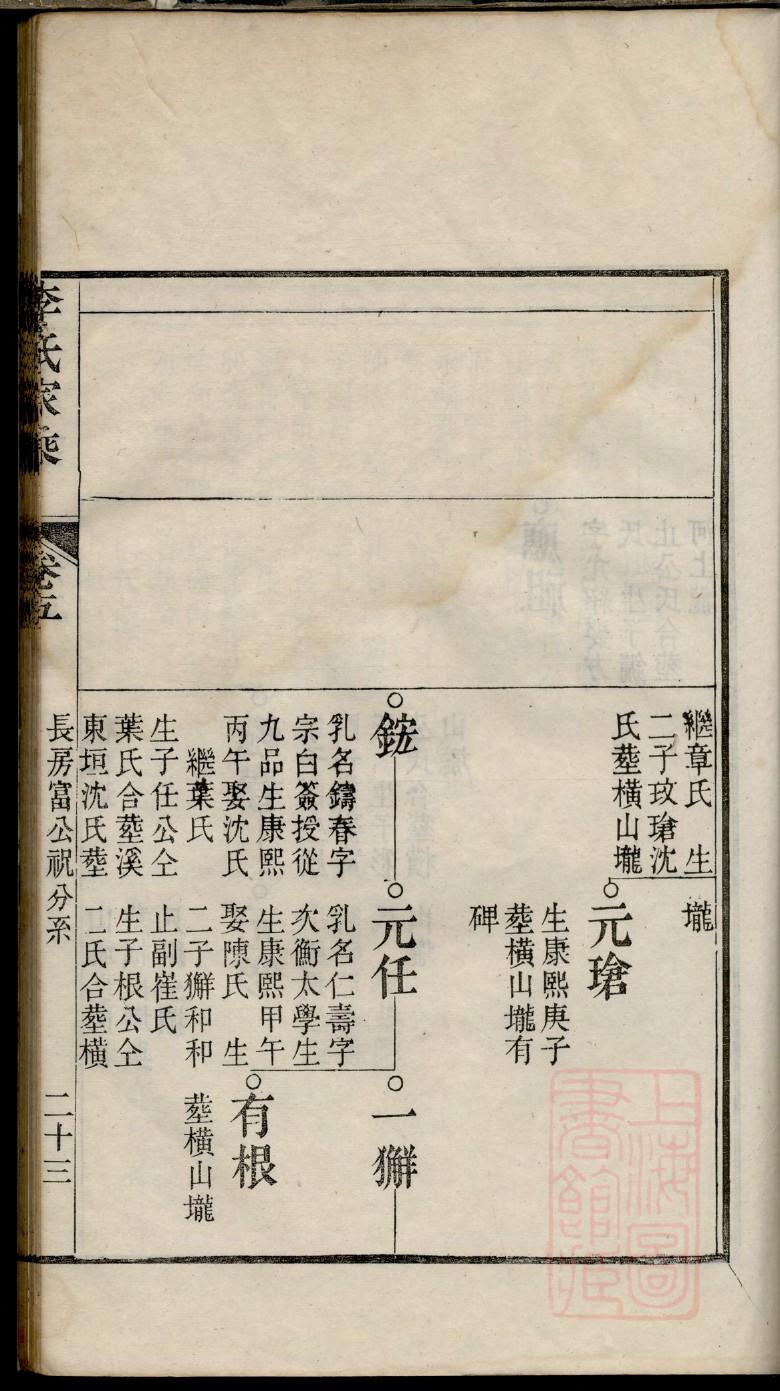 繼章氏　生
二子玟瑲沈
氏塟橫山壠
壠
元瑲
生康熙庚子
塟橫山壠有
碑
鋐
乳名鑄春字
宗白簽授從
九品生康熙
丙午娶沈氏
繼葉氏
生子任公仝
葉氏合塟溪
東垣沈氏塟
元任
乳名仁壽字
次衡太學生
生康熙甲午
娶陳氏　生
二子獬和和
止副崔氏
生子根公仝
二氏合塟橫
一獬
有根
塟橫山壠
李氏家乘
卷五
長房富公祝分系
二十三
上海圖
書館藏